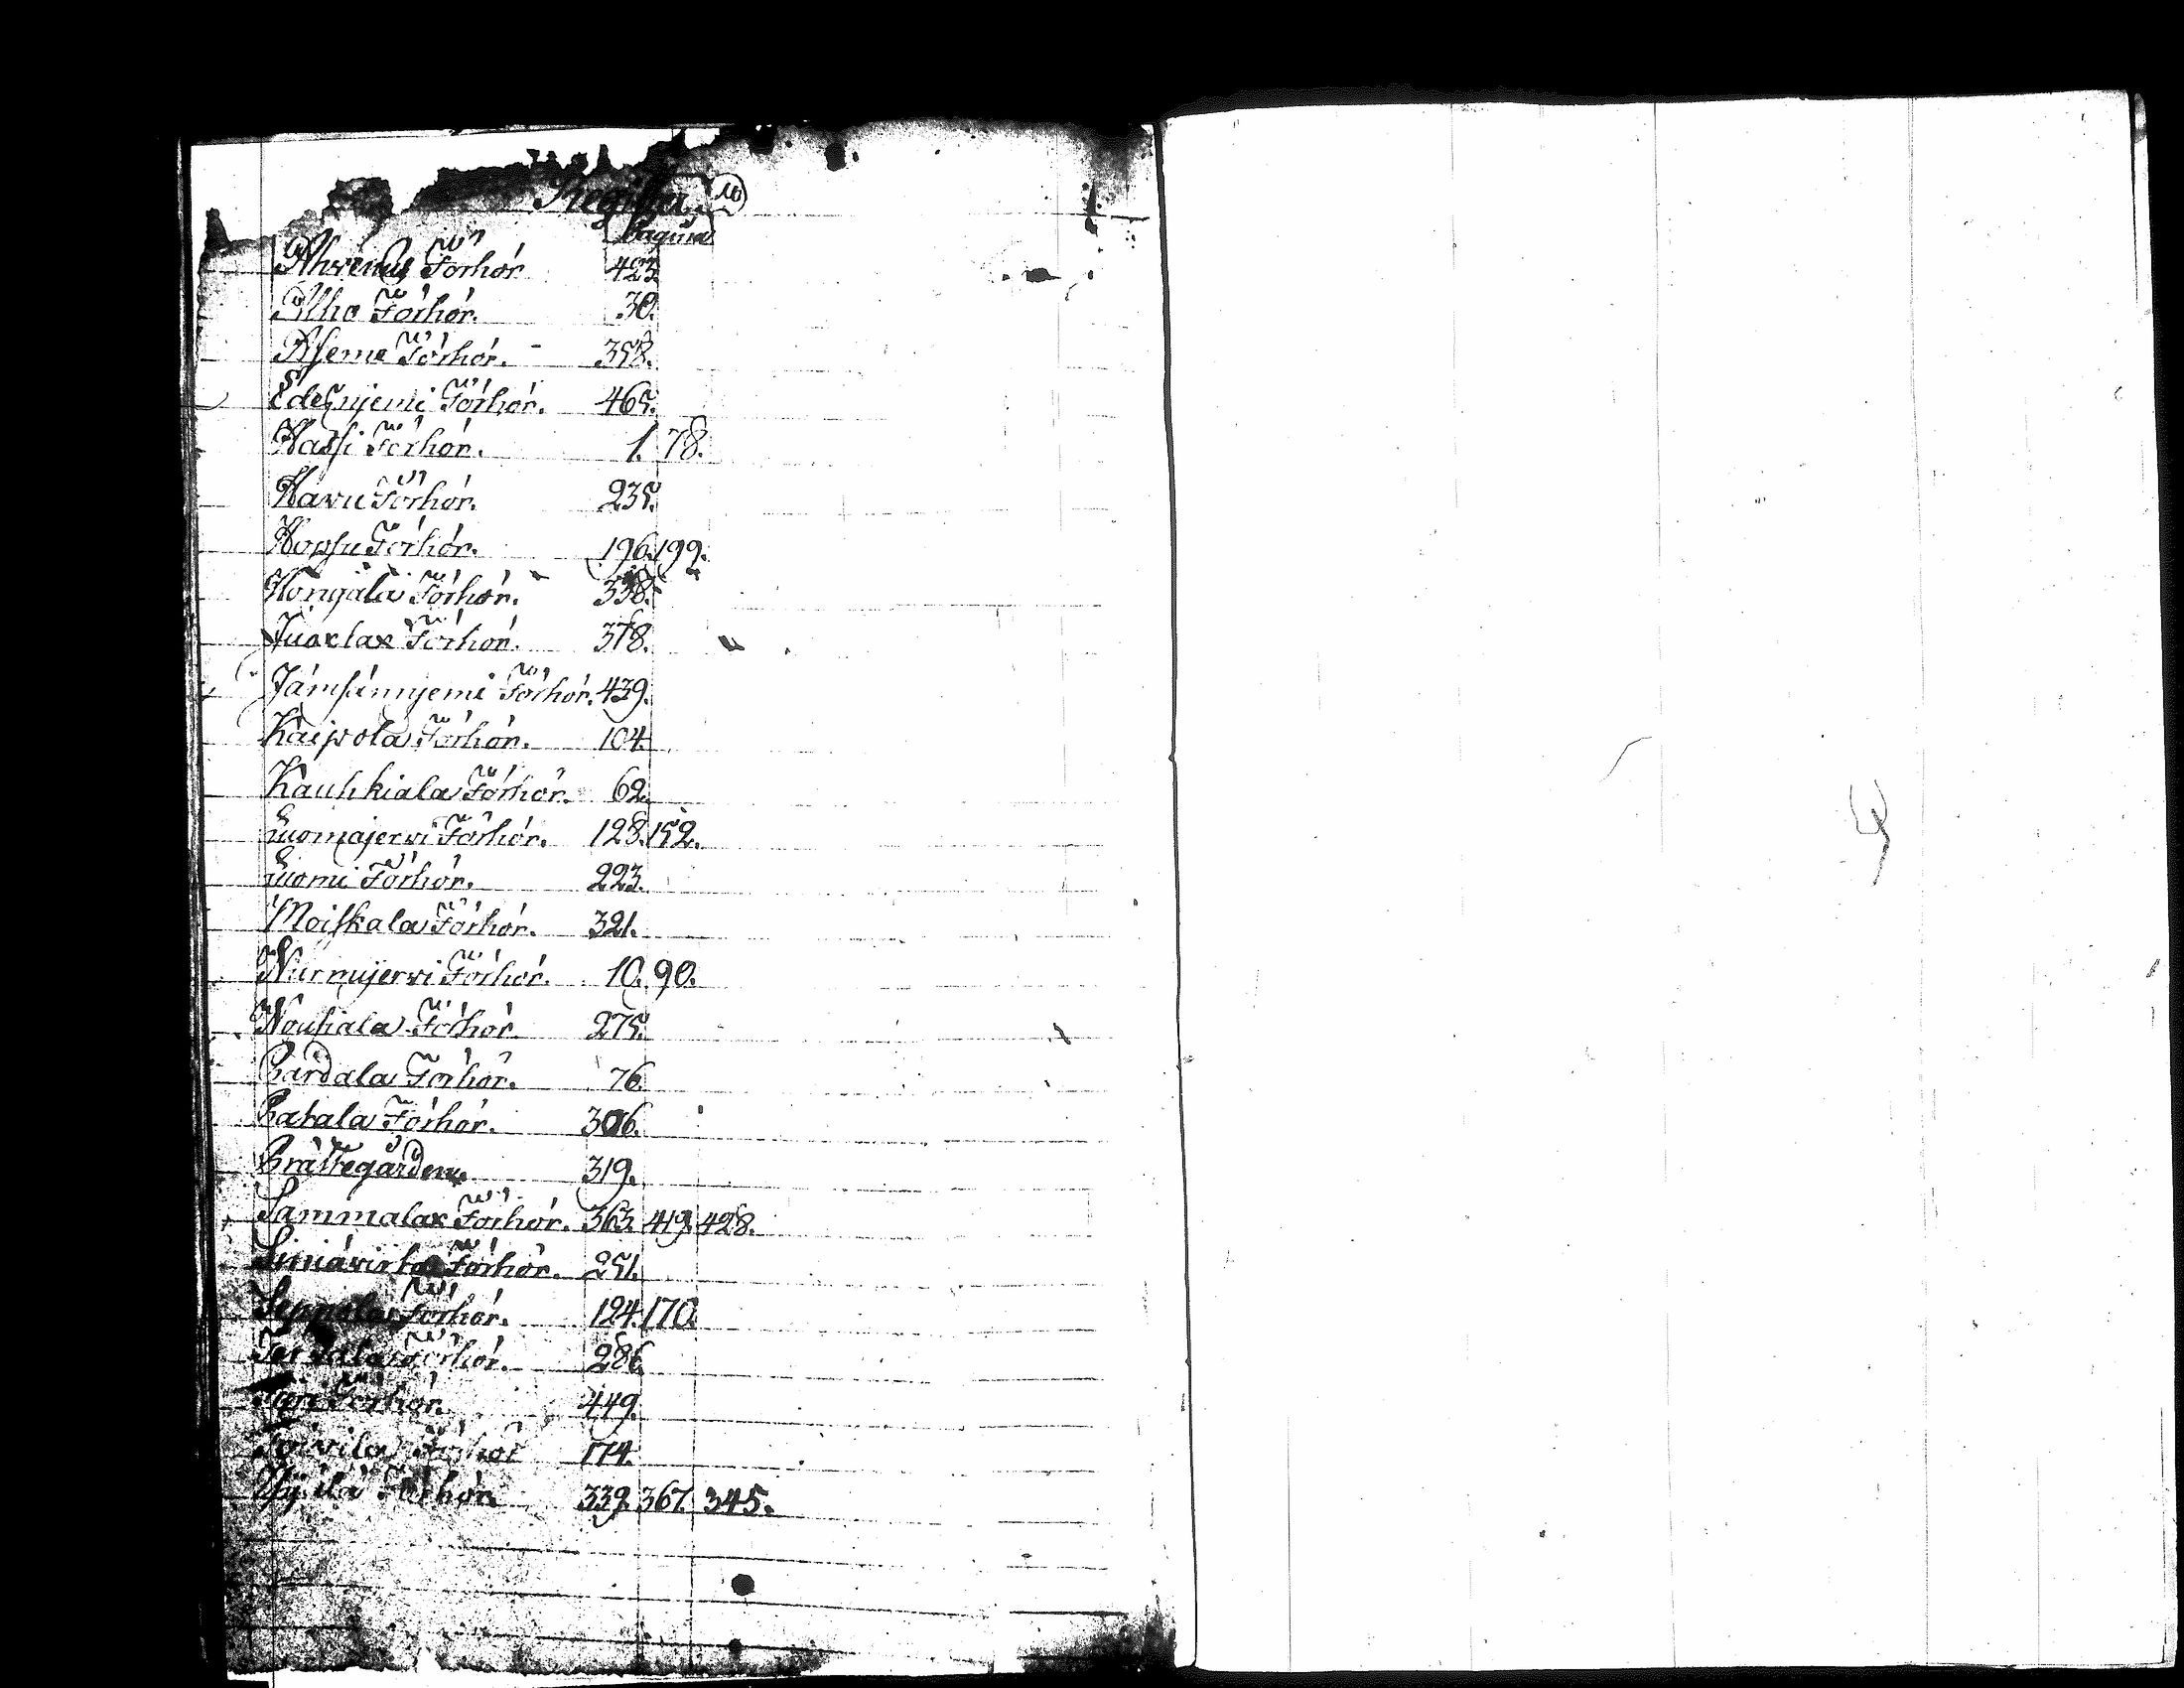 Register 10
Pagina
Ahvenus Förhör 423
Alho Förhör. 30.
Asemi Förhör. 358.
Edesnjemi Förhör. 465.
Hassi Förhör. 1. 78.
Havu Förhör. 235.
Hopsu Förhör. 196. 199.
Hongala Förhör. 338.
Juoxlax Förhör. 378.
Jämsännjemi Förhör. 439.
Kaipola Förhör. 104.
Kauhkiala Förhör. 62.
Luomajervi Förhör. 128. 152.
Luomi Förhör. 223.
Moiskala Förhör. 321.
Nurmijervi Förhör. 10. 90.
Nouhiala Förhör. 275.
Pårdala Förhör. 76.
Patala Förhör. 306.
Prästegården. 319.
Sammalax Förhör. 363. 419. 428.
Siniävirta Förhör. 251.
Seppola Förhör. 124. 170.
Förhör. 286
Förhör. 449.
Förhör 174.
Förhör. 339. 367. 345.